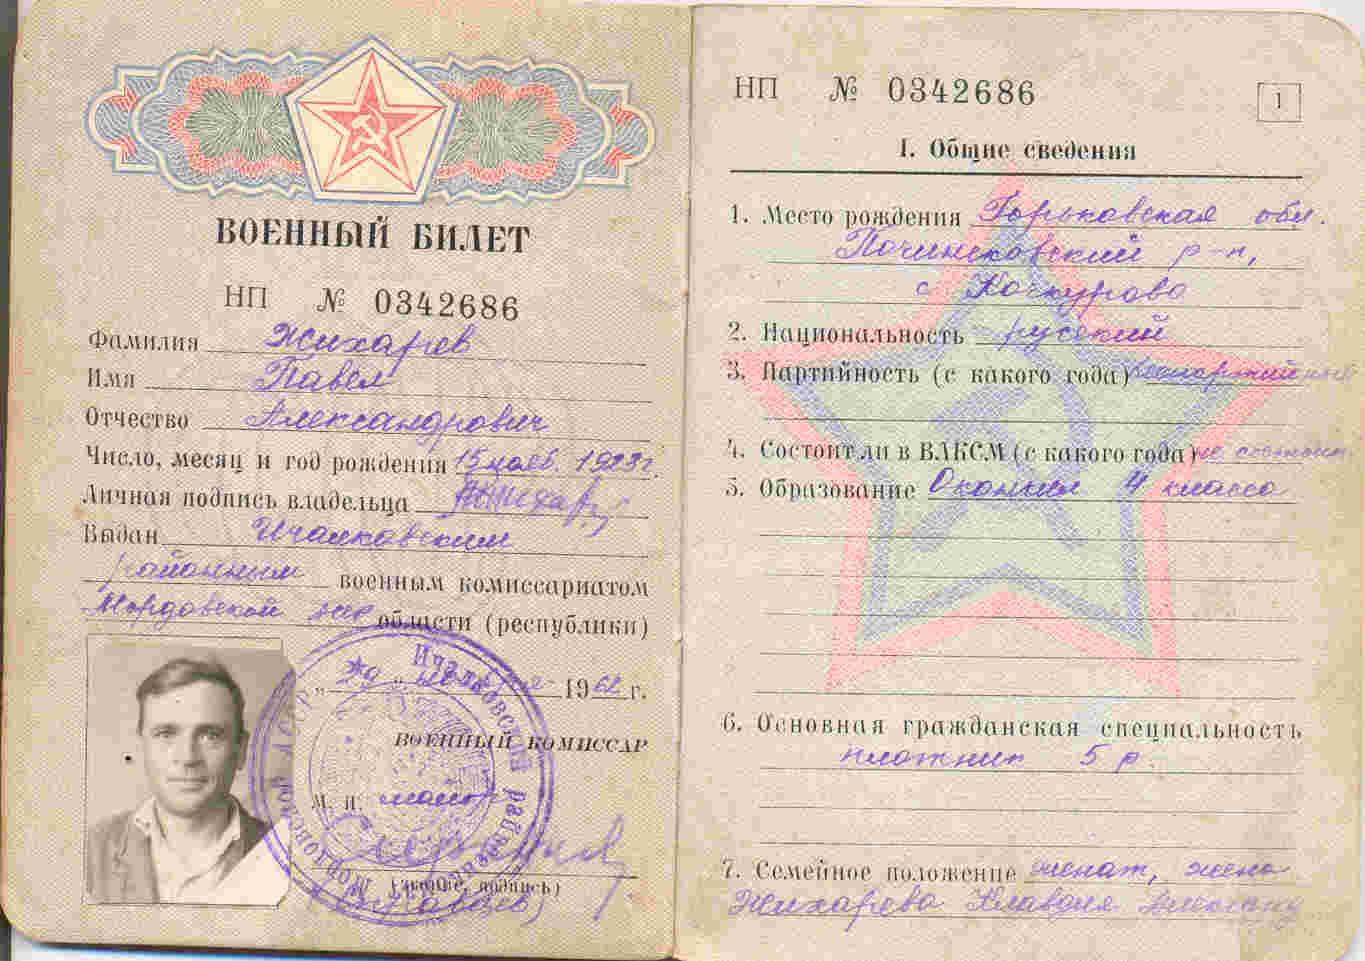 ВОЕННЫЙ БИЛЕТ
НП № 0342686
Фамилия Жихарев
Имя Павел
Отчество Александрович
Число, месяц и год рождения 15 нояб. 1923 г.
Личная подпись владельца
Выдан Ичалковским
районным военным комиссариатом
Мордовской области (республики)
" " 1962 г.
ВОЕННЫЙ КОМИССАР
М. П. майор
(звание, подпись)
Ичалковский
Мордовской АССР
НП № 0342686
1
1. Общие сведения
1. Место рождения Горьковская обл.
Починковский р-н,
с
2. Национальность русский
3. Партийность (с какого года) беспартийный
4. Состоит ли в ВЛКСМ (с какого года) не состоит
5. Образование Окончил 4 класса
6. Основная гражданская специальность
плотник 5 р
7. Семейное положение женат, жена
Жихарева Клавдия